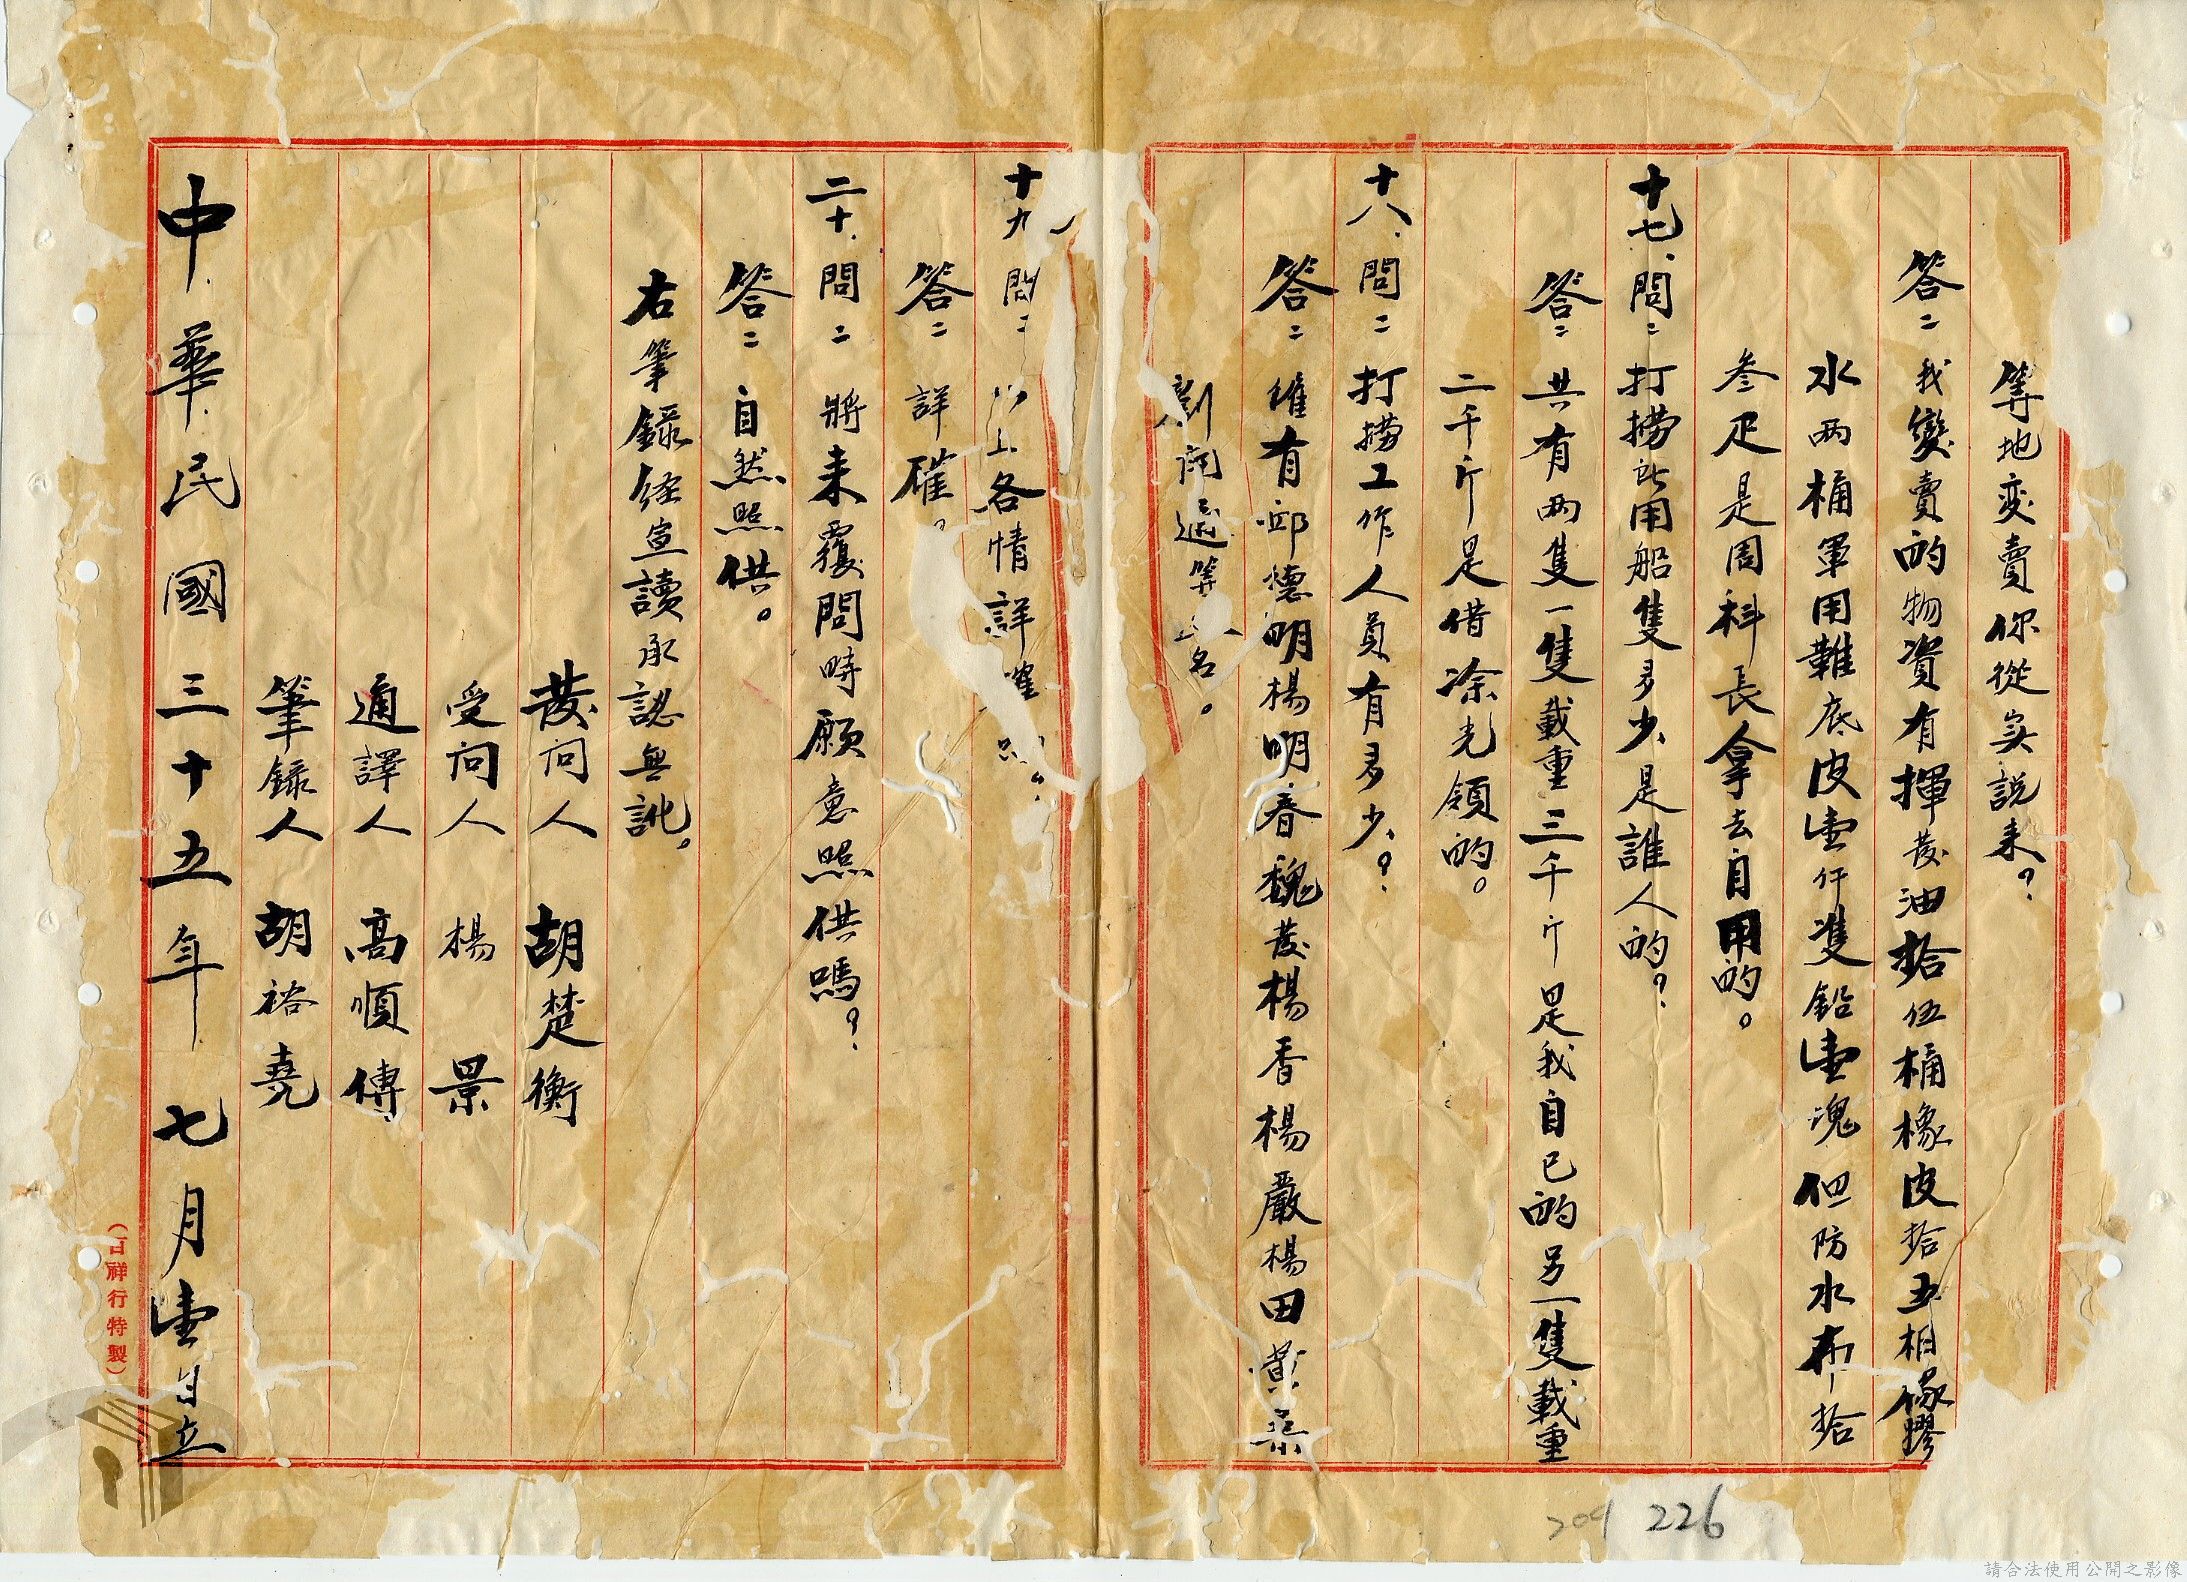 等地变賣你從实説来？
答：我變賣的物資有揮發油拾伍桶橡皮拾五相橡膠
水两桶軍用鞋底皮壹仟隻鉛壹塊但防水布拾
叁疋是周科長拿去自用的。
十七、問：打撈所用船隻多少是誰人的？
答：共有两隻一隻載重三千斤是我自己的另一隻載重
二千斤是借涂光領的。
十八、問：打撈工作人員有多少？
答：維有邱德明楊明春魏發楊香楊嚴楊田黄
等名。
十九問：以上各情詳確
答：詳確。
二十、問：將来覆問時願意照供嗎？
答：自然照供。
右筆錄经宣讀承認無訛。
發问人 胡楚衡
受问人 楊景
通譯人 高順傳
筆録人 胡裕堯
中華民國三十五年七月壹日立
(日祥行特製)
204 226
請合法使用公開之影像